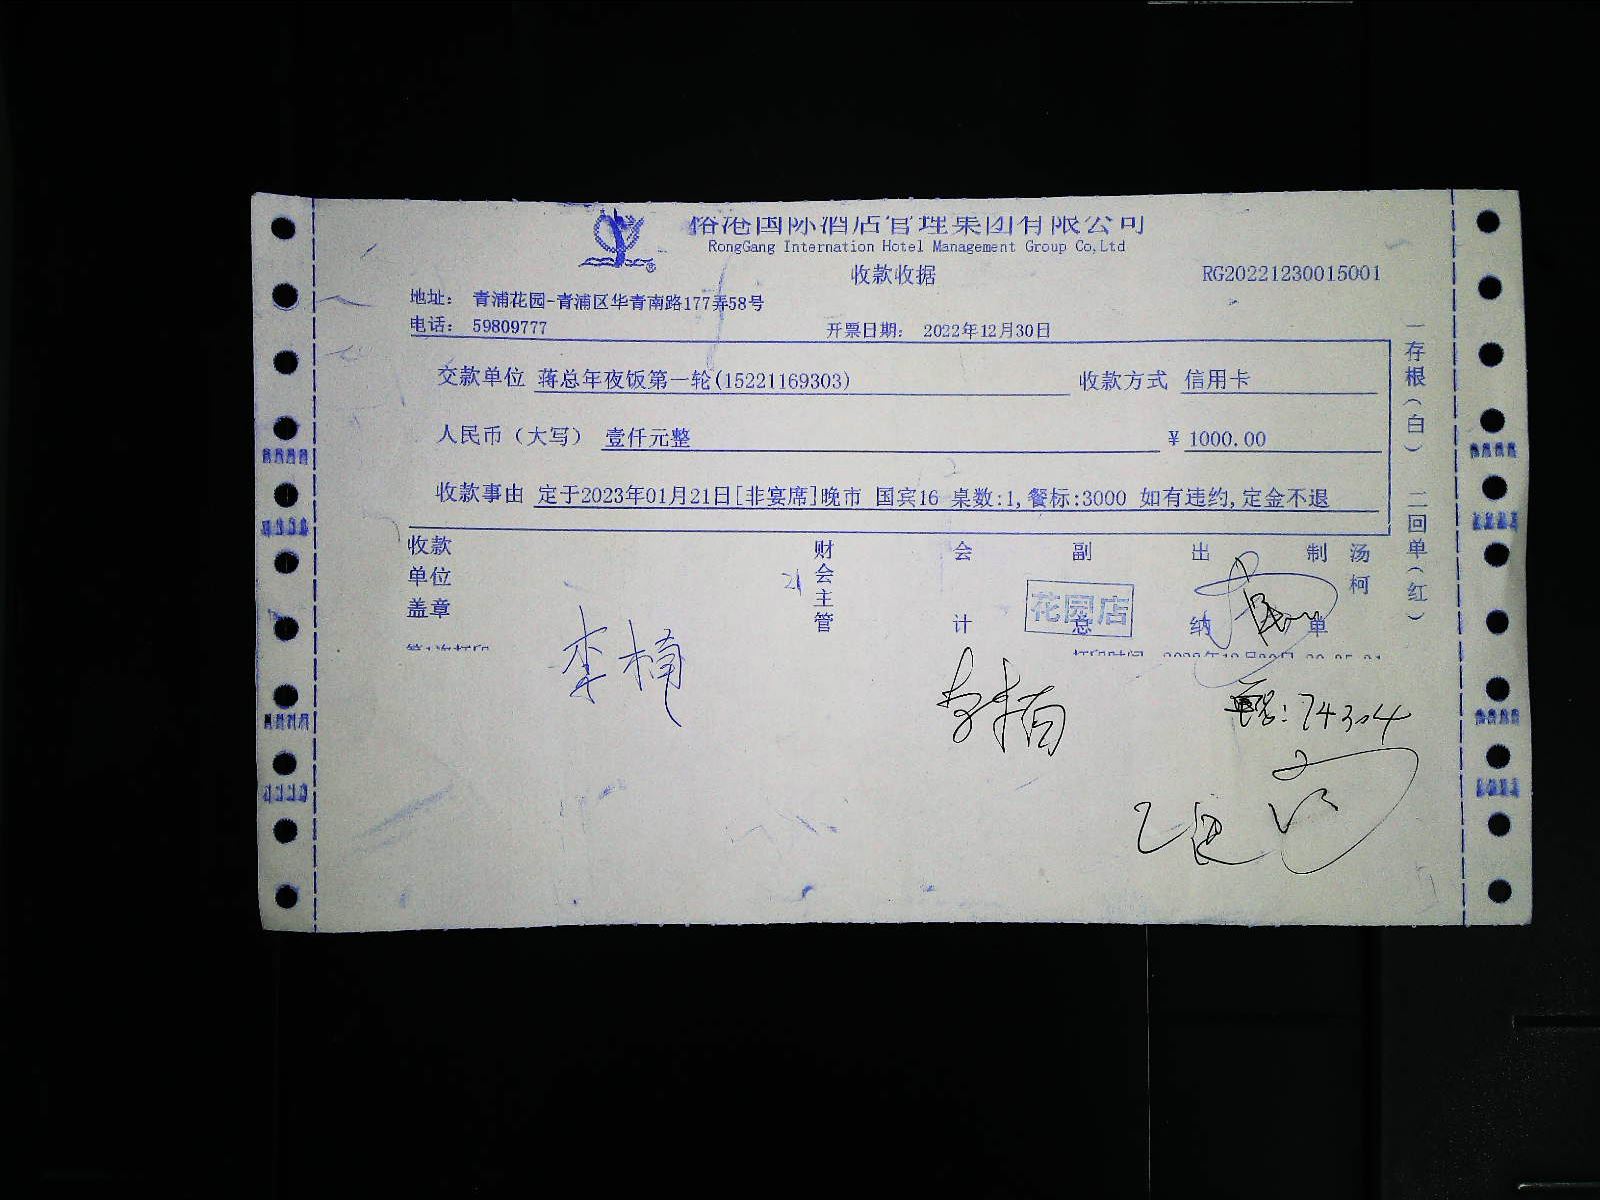 国际酒店管理集团有限公司
RongGang Internation Hotel Management Group Co,Ltd
收款收据 RG20221230015001
地址： 青浦花园-青浦区华青南路177弄58号
电话： 59809777 开票日期： 2022年12月30日
交款单位 蒋总年夜饭第一轮(15221169303) 收款方式 信用卡
人民币（大写） 壹仟元整 ¥ 1000.00
收款事由 定于2023年01月21日[非宴席]晚市 国宾16 桌数:1,餐标:3000 如有违约,定金不退
一存根（白） 二回单（红）
收款单位盖章 财会主管 会计 副总 出纳 制单 汤柯
花园店
李楠
李楠
74304